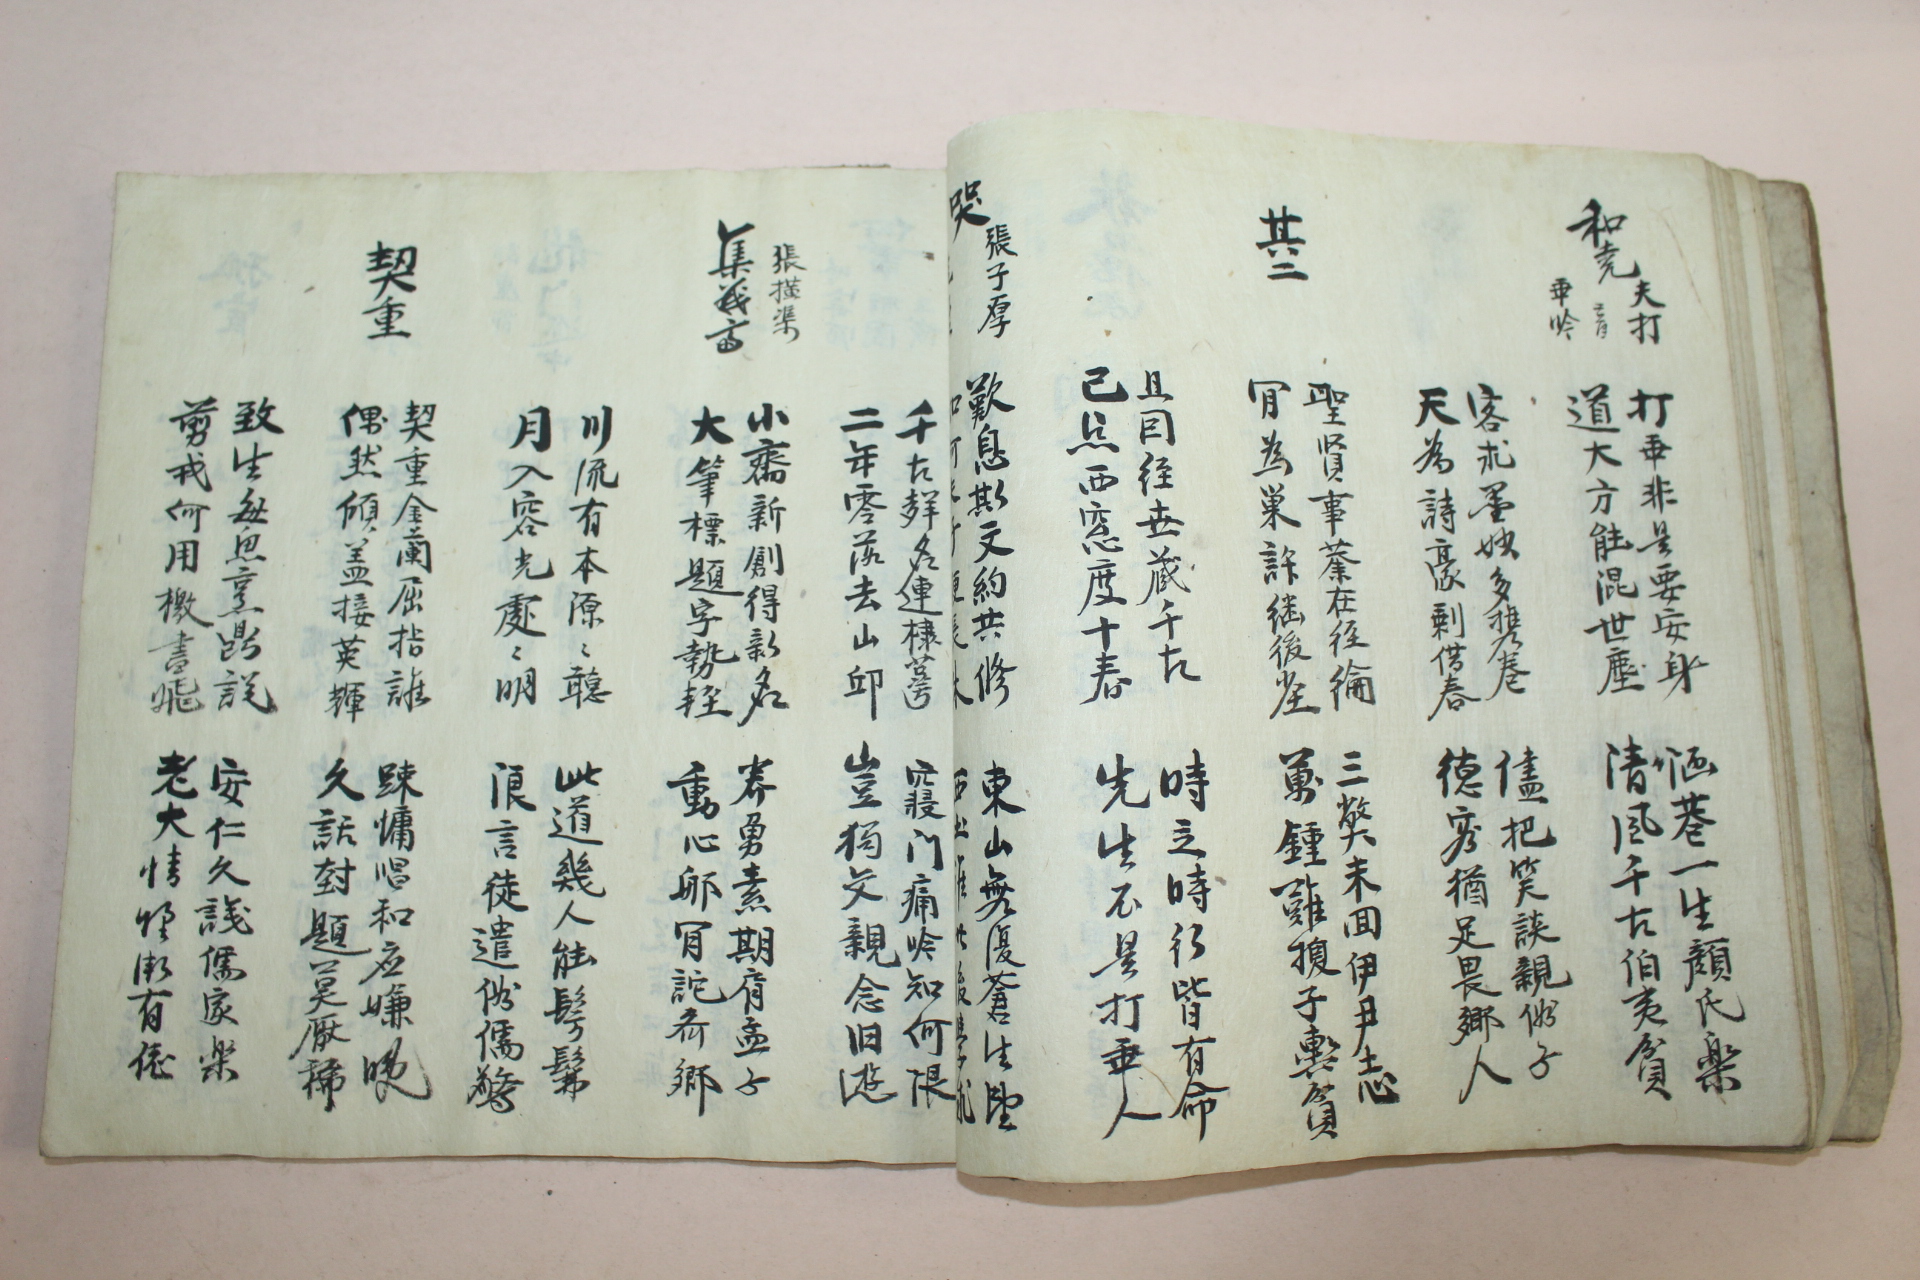 和堯夫打乖吟
打乖非是要安身
道大方能混世塵
陋巷一生顏氏樂
清風千古伯夷貧
客求墨妙多携卷
天為詩豪剩借春
儘把笑談親俗子
德容猶足畏鄉人
其二
聖賢事業在經綸
肯為巢許継後塵
三幣未回伊尹志
萬鍾難換子輿貧
且因經世藏千古
已占西窓度十春
時之時行皆有命
先生不是打乖人
哭張子厚
歎息斯文約共修
東山無復蒼生望
千古聲名連棣萼
二年零落去山邱
寢門痛哭知何限
豈獨交親念旧遊
張橫渠
集義齋
小齋新創得新名
大筆標題字勢輕
養勇素期肩孟子
動心那肯詫齊卿
川流有本源〻聽
月入容光處〻明
此道幾人能髣髴
浪言徒遣俗儒驚
契重
契重金蘭屈指誰
偶然傾盖接英輝
踈慵唱和应嫌晩
久話對題莫厭稀
致生每思烹鼎説
剪戎何用檄書飛
安仁久議儒家樂
老大情懷漸有依